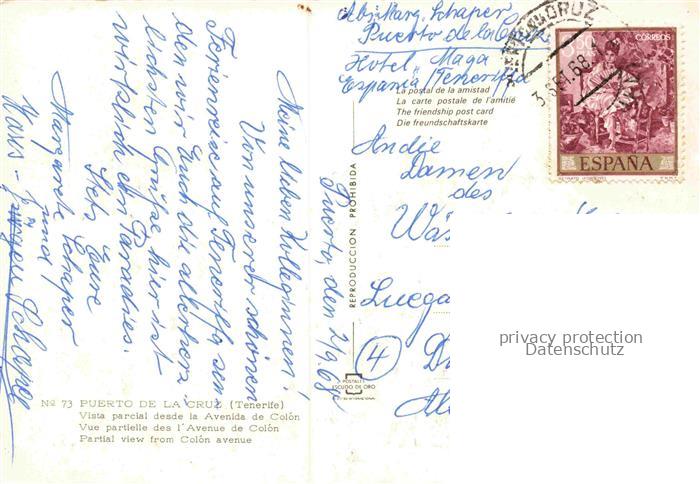 Puerto, den 2/9.68
Meine lieben Kolleginnen!
Von unserer schönen
Ferienreise auf Teneriffa sen-
den wir Euch die allerherz-
lichsten Grüße hier ist
wirklich ein Paradies.
Stets Eure
Margarete Schaper
und
Hans-Jürgen Schaper
Nº 73 PUERTO DE LA CRUZ (Tenerife)
Vista parcial desde la Avenida de Colón
Vue partielle des l'Avenue de Colón
Partial view from Colón avenue
REPRODUCCION PROHIBIDA
POSTALES
ESCUDO DE ORO
Abs. Marg. Schaper
Puerto de la Cruz
Hotel "Maga
Espania/Teneriffa
La postal de la amistad
La carte postale de l'amitié
The friendship post card
Die freundschaftskarte
CORREOS
ESPAÑA
An die
Damen
des
Luega
4
privacy protection
Datenschutz